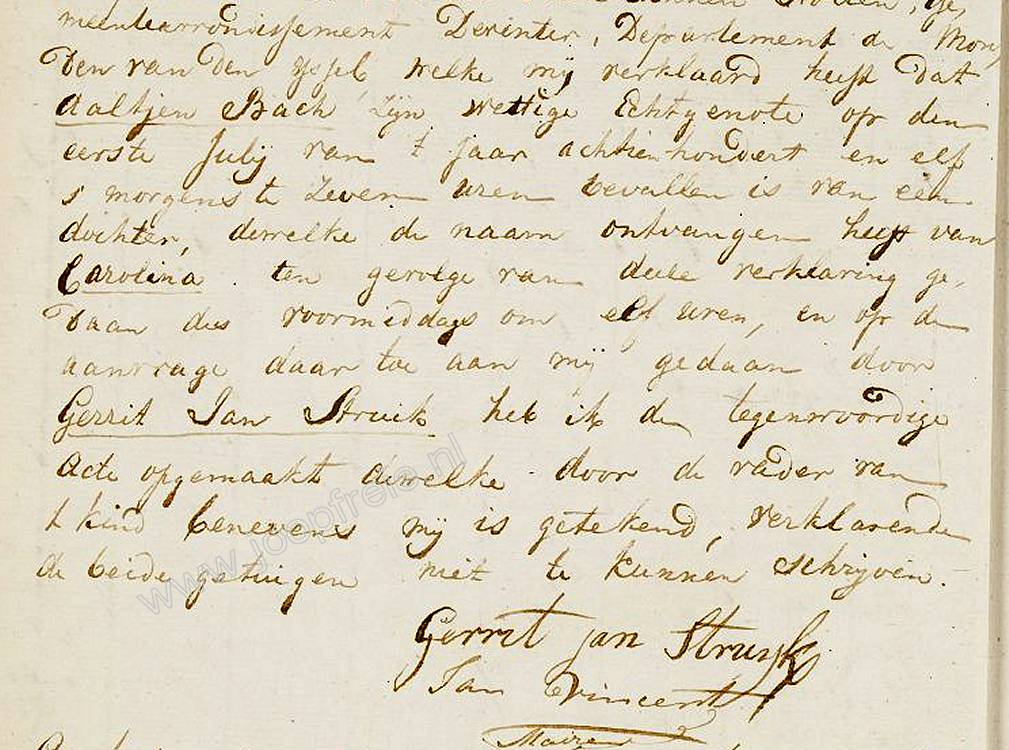 meentearrondissement Deventer, Departement de Mon,
den van den yssel welke mij verklaard heeft dat
Aaltjen Bach zijn wettige Echtgenote op den
eerste Julij van t jaar achtien hondert en elf
s morgens te zeven uren bevallen is van een
dochter, dewelke de naam ontvangen heeft van
Carolina ten gevolge van deese verklaring ge,
daan des voormiddags om elf uren, en op de
aanvrage daar toe aan mij gedaan door
Gerrit Jan Struik heb ik de tegenwoordige
Acte opgemaakt dewelke door de vader van
t kind benevens mij is getekend, verklarende
de beide getuigen niet te kunnen schrijven.
Gerrit jan Struijk
Jan Vincent
Maire
www.joopfrele.nl